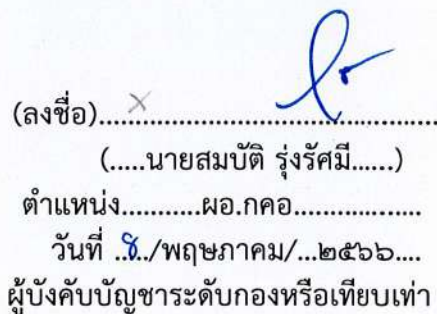 (ลงชื่อ)...........................................
(.....นายสมบัติ รุ่งรัศมี......)
ตำแหน่ง...........ผอ.กคอ..................
วันที่ ..๘../พฤษภาคม/...๒๕๖๖....
ผู้บังคับบัญชาระดับกองหรือเทียบเท่า